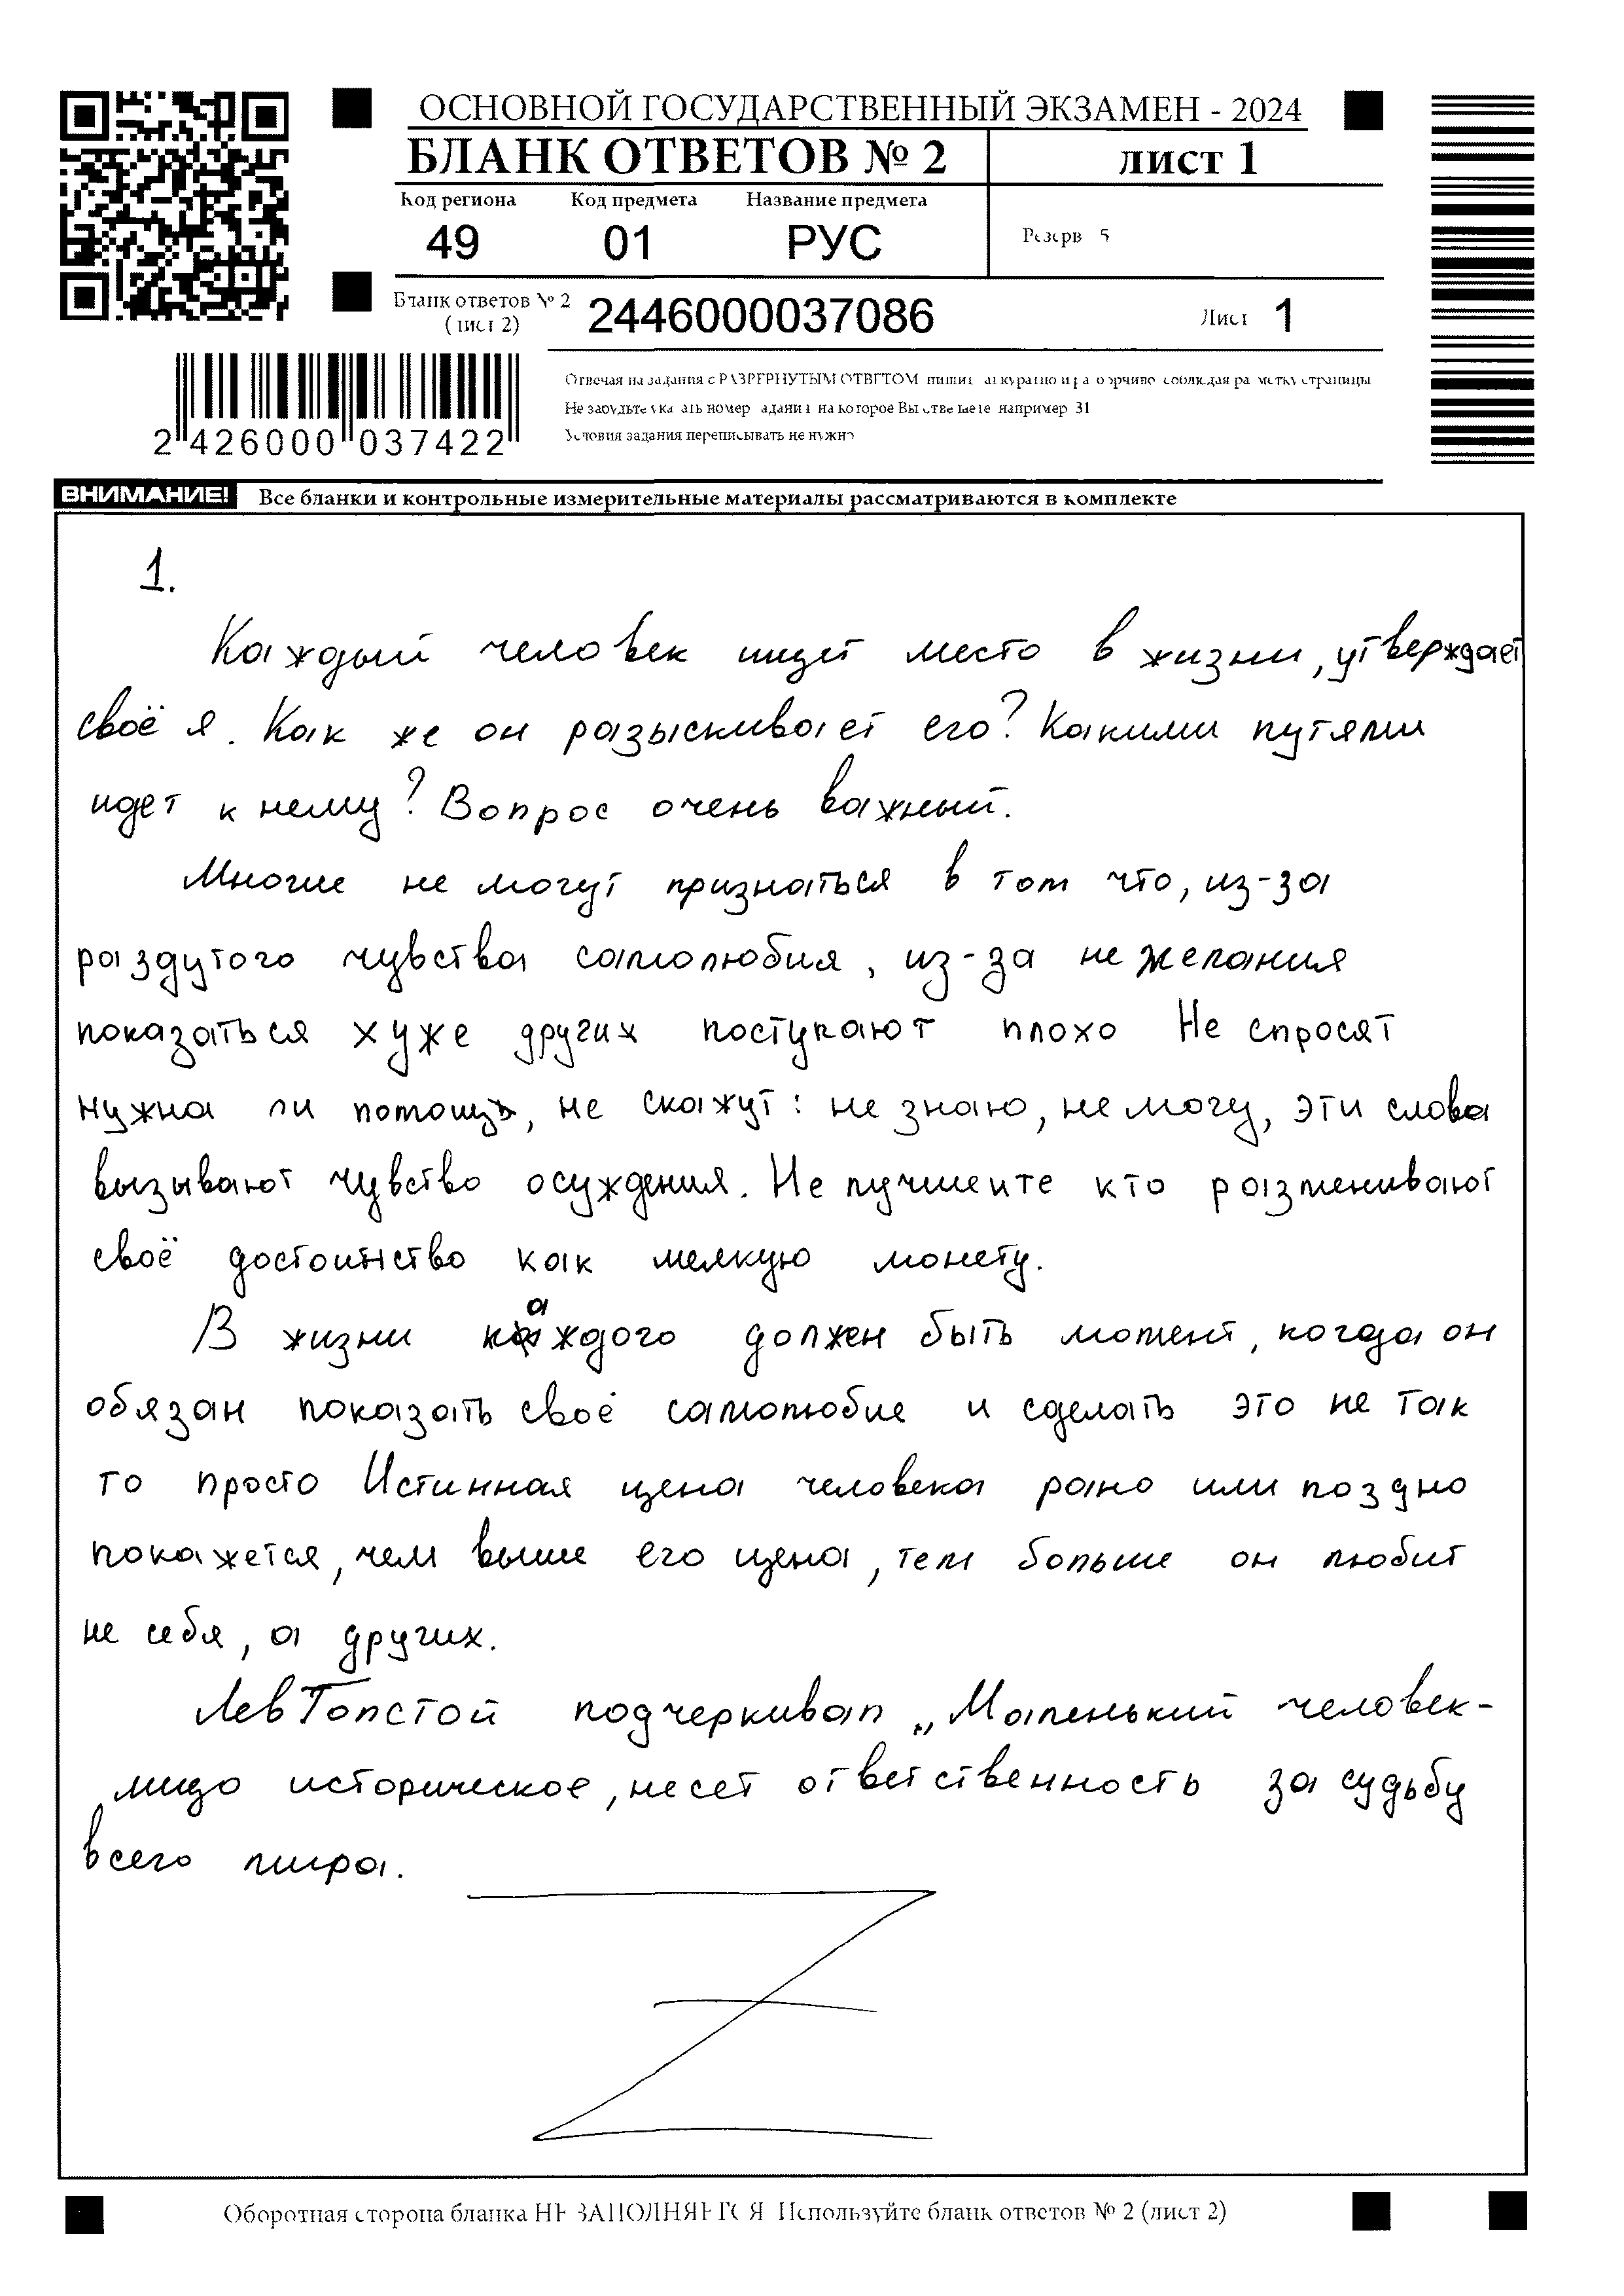 ОСНОВНОЙ ГОСУДАРСТВЕННЫЙ ЭКЗАМЕН - 2024
БЛАНК ОТВЕТОВ № 2
лист 1
Код региона Код предмета Название предмета
49 01 РУС
Резерв 5
Бланк ответов № 2
(лист 2)
2446000037086
Лист 1
2 426000 037422
Отвечая на задания с РАЗВЕРНУТЫМ ОТВЕТОМ пишите аккуратно и разборчиво соблюдая разметку страницы
Не забудьте указать номер задания на которое Вы отвечаете например 31
Условия задания переписывать не нужно
ВНИМАНИЕ! Все бланки и контрольные измерительные материалы рассматриваются в комплекте
1.
Каждый человек ищет место в жизни, утверждает
своё я. Как же он разыскивает его? Какими путями
идет к нему? Вопрос очень важный.
Многие не могут признаться в том что, из-за
раздутого чувства самолюбия, из-за не желания
показаться хуже других поступают плохо Не спросят
нужна ли помощь, не скажут: не знаю, не могу, эти слова
вызывают чувство осуждения. Не лучше и те кто разменивают
своё достоинство как мелкую монету.
В жизни каждого должен быть момент, когда он
обязан показать своё самолюбие и сделать это не так
то просто Истинная цена человека рано или поздно
покажется, чем выше его цена, тем больше он любит
не себя, а других.
Лев Толстой подчеркивал „Маленький человек-
лицо историческое, несет ответственность за судьбу
всего мира.
Оборотная сторона бланка НЕ ЗАПОЛНЯЕТСЯ Используйте бланк ответов № 2 (лист 2)